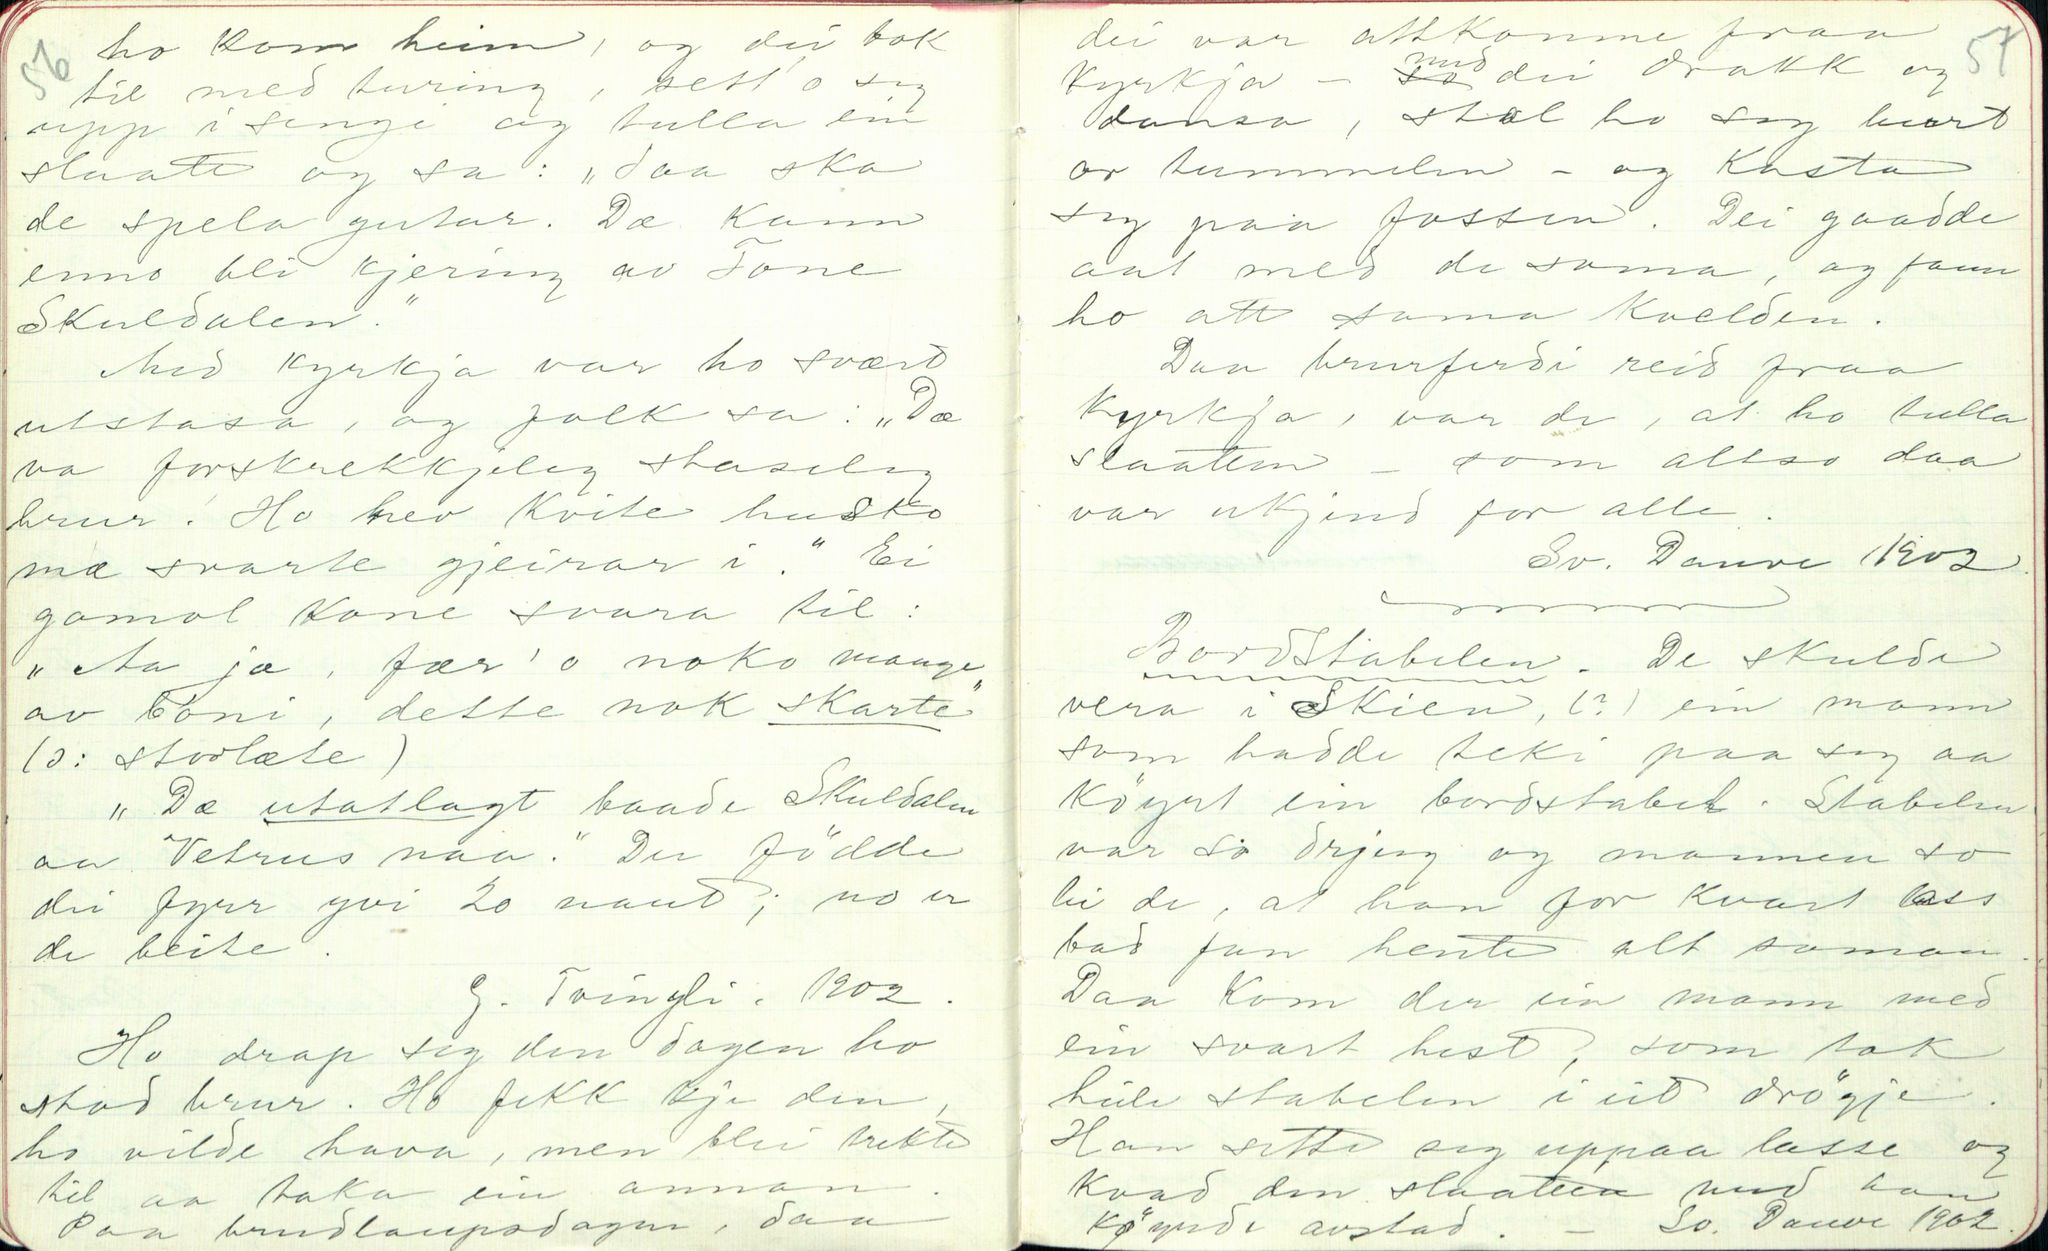 56
ho kom heim, og dei tok
til med turing, sett'o seg
upp i sengi og tulla ein
slaatt og sa: „Daa ska
de spela gutar. Dæ kann
enno bli kjering av Tone
Skuldalen."
Med kyrkja var ho svært
utstasa, og folk sa: „Dæ
va forskrekkjeleg staseleg
brur! Ho hev kvite husko
mæ svarte gjeirar i." Ei
gamol kone svara til:
„Aa ja, fær'o noko mange
av bóni, dette nok skarte"
(ɔ: storlæte)
„Dæ utatlagt baade Skuldalen
aa Vetrus naa." Der födde
dei fyrr yvi 20 naut; no er
de beite.
G. Tvingli. 1902.
Ho drap seg den dagen ho
stod brur. Ho fekk kje den,
ho vilde hava, men blei trekt
til aa taka ein annan.
Paa brudlaupsdagen, daa
57
dei var attkomne fraa
kyrkja – med dei drakk og
dansa, stal ho seg burt
or tummelen – og kasta
seg paa fossen. Dei gaadde
aat med de soma, og fann
ho att soma kvelden.
Daa brurferdi reid fraa
kyrkja, var de, at ho tulla
slaatten – som altso daa
var ukjend for alle.
Sv. Dauve 1902
Bordstabelen. De skulde
vera i Skien, (?) ein mann
som hadde teki paa seg aa
köyrt ein bordstabel. Stabelen
var so drjug og mannen so
lei de, at han for kvart lass
bad fan hente alt saman.
Daa kom der ein mann med
ein svart hest, som tok
heile stabelen i eit drögje.
Han sette seg uppaa lasse og
kvad den slaatten med han
köyrde avstad. – Sv. Dauve 1902.